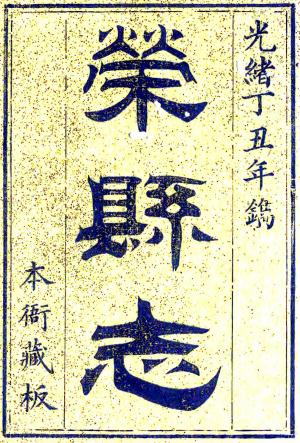 光緒丁丑年鐫
榮縣志
本衙藏板